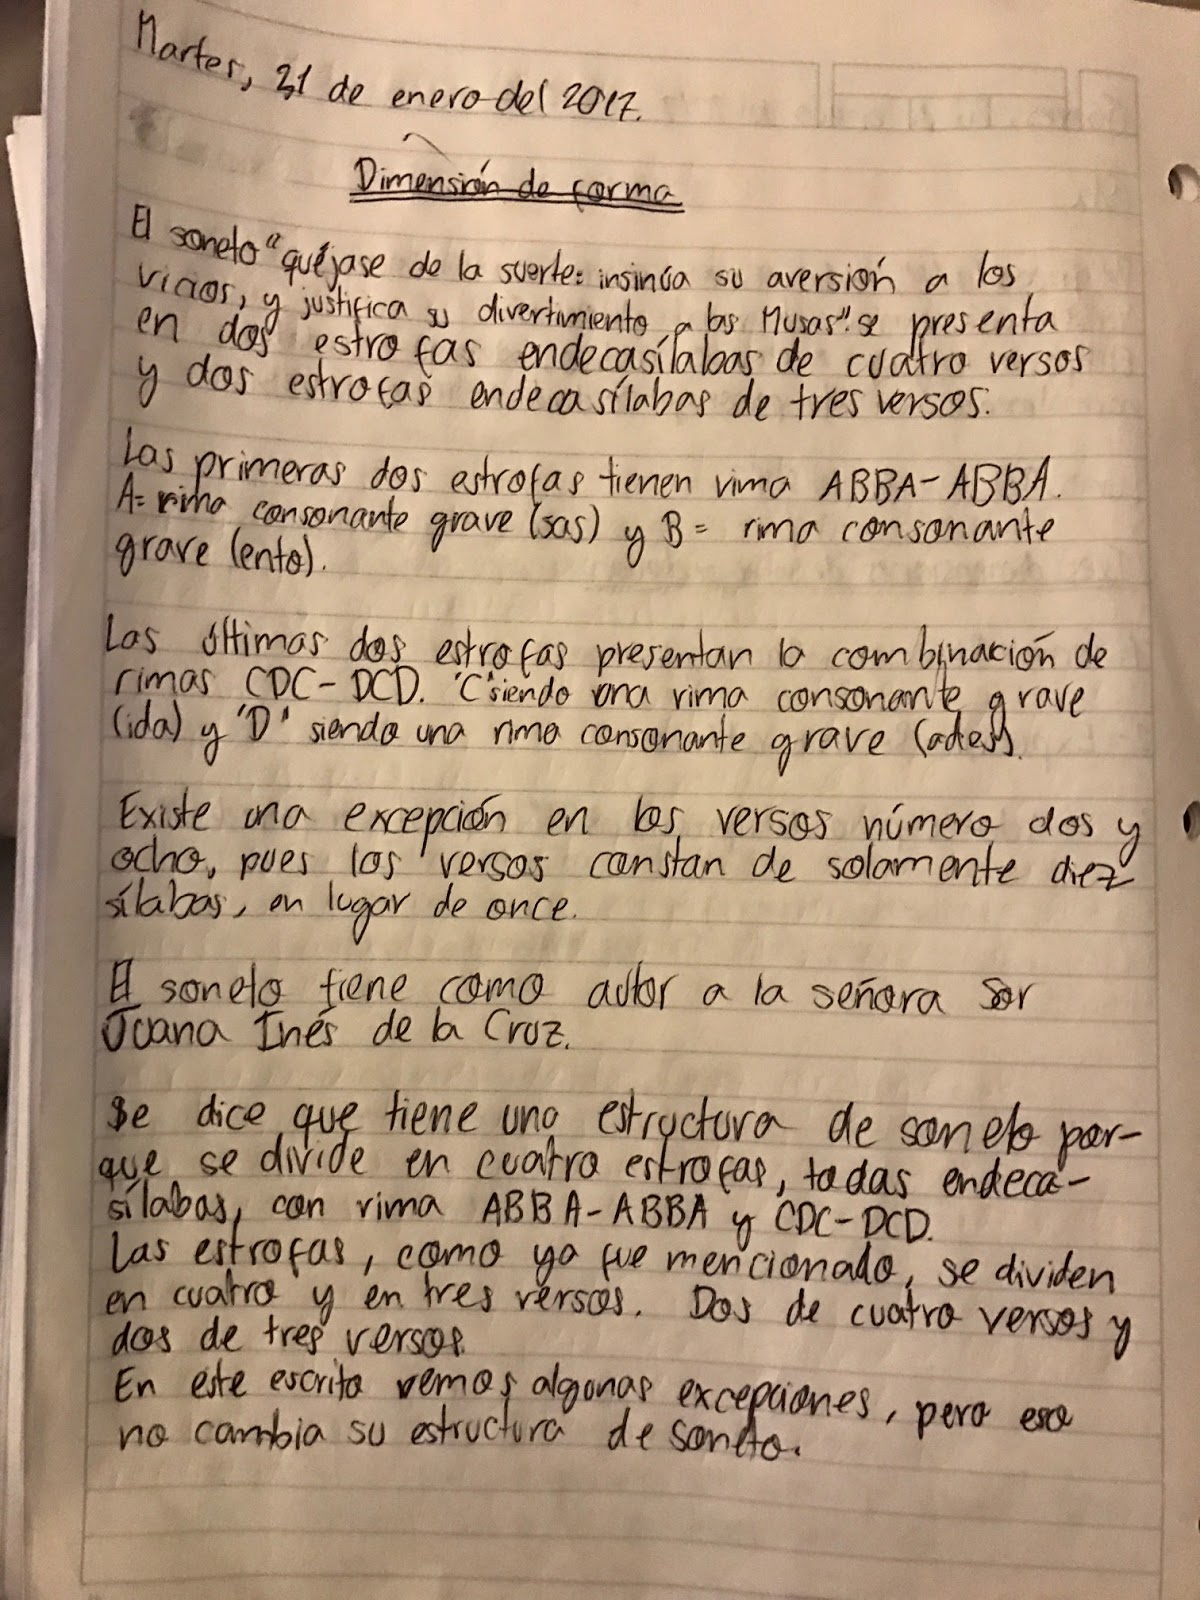 Martes, 31 de enero del 2017.
Dimensión de forma
El soneto "quéjase de la suerte: insinúa su aversión a los
vicios, y justifica su divertimiento a las Musas". se presenta
en dos estrofas endecasílabas de cuatro versos
y dos estrofas endecasílabas de tres versos.
Las primeras dos estrofas tienen rima ABBA-ABBA.
A= rima consonante grave (sas) y B= rima consonante
grave (ento).
Las últimas dos estrofas presentan la combinación de
rimas CDC-DCD. 'C' siendo una rima consonante grave
(ida) y 'D' siendo una rima consonante grave (ades).
Existe una excepción en los versos número dos y
ocho, pues los versos constan de solamente diez
sílabas, en lugar de once.
El soneto tiene como autor a la señora Sor
Juana Inés de la Cruz.
Se dice que tiene una estructura de soneto por-
que se divide en cuatro estrofas, todas endeca-
sílabas, con rima ABBA-ABBA y CDC-DCD.
Las estrofas, como ya fue mencionado, se dividen
en cuatro y en tres versos. Dos de cuatro versos y
dos de tres versos.
En este escrito vemos algunas excepciones, pero eso
no cambia su estructura de soneto.